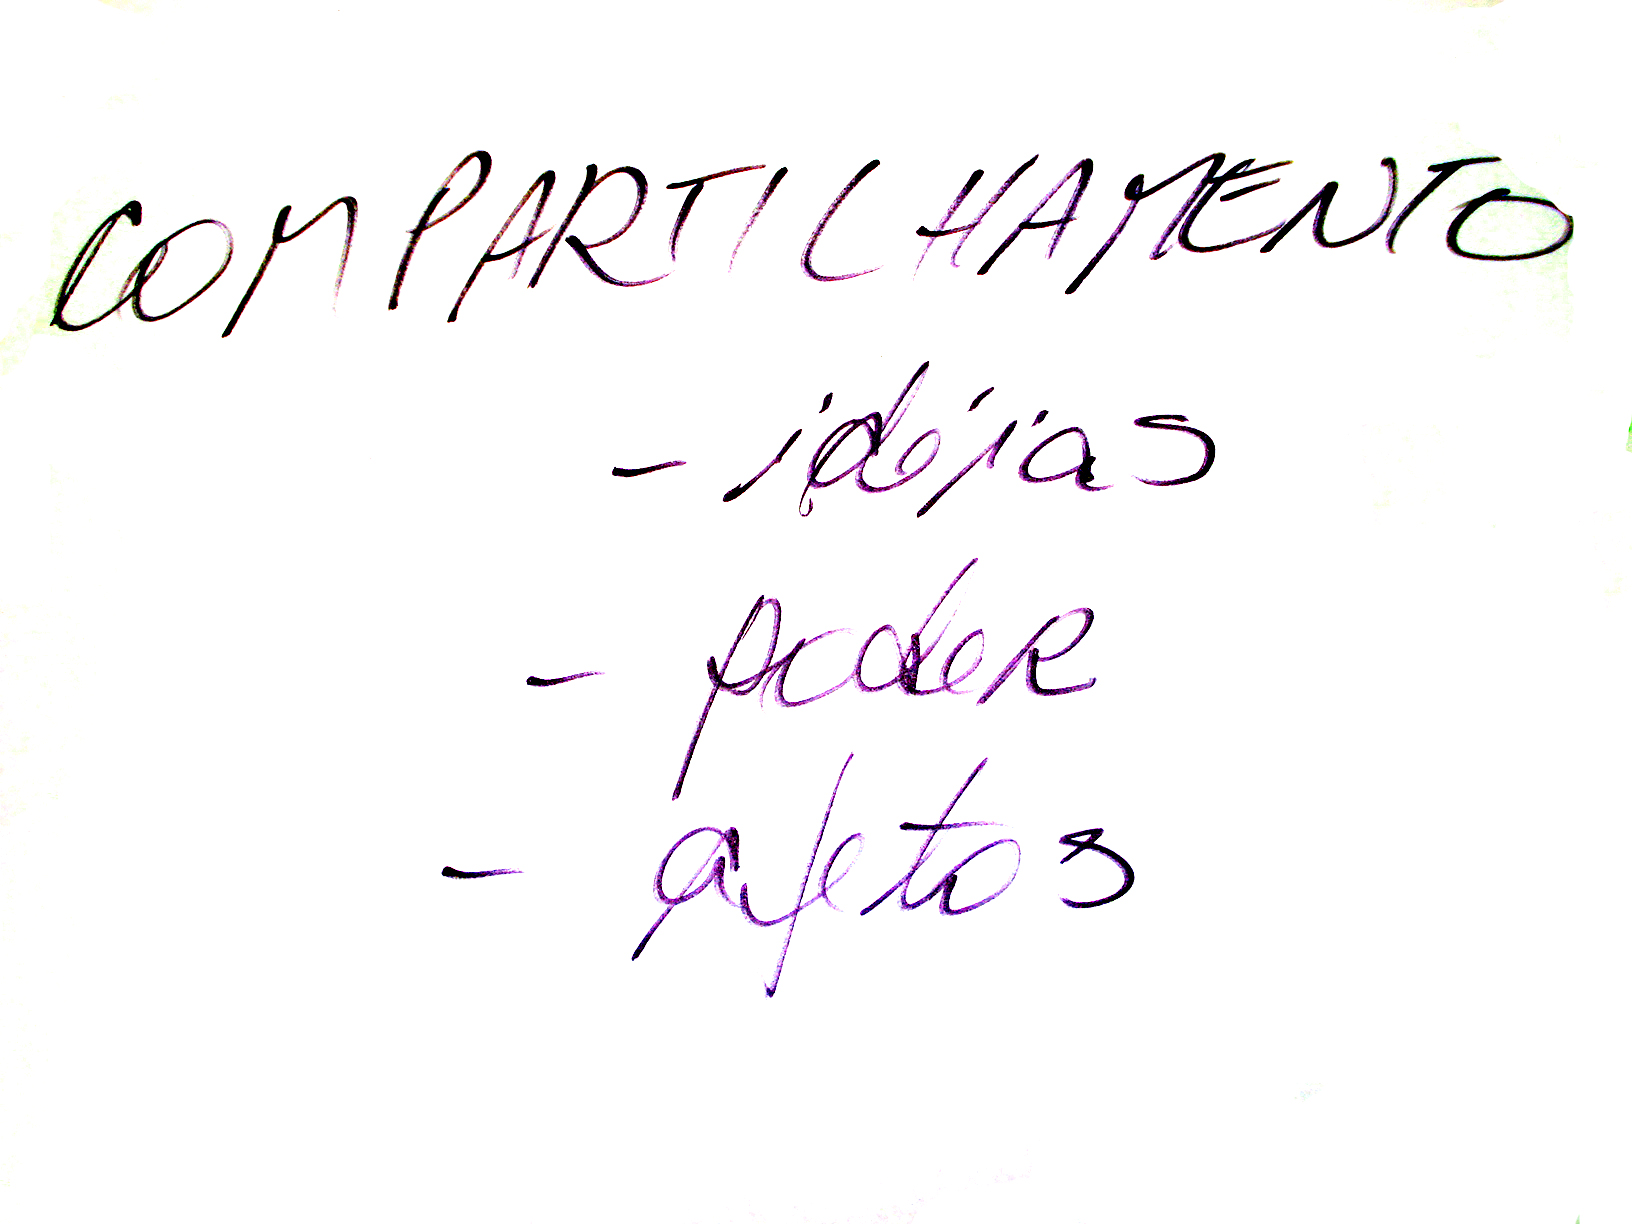 COMPARTILHAMENTO
- idéias
- poder
- afetos